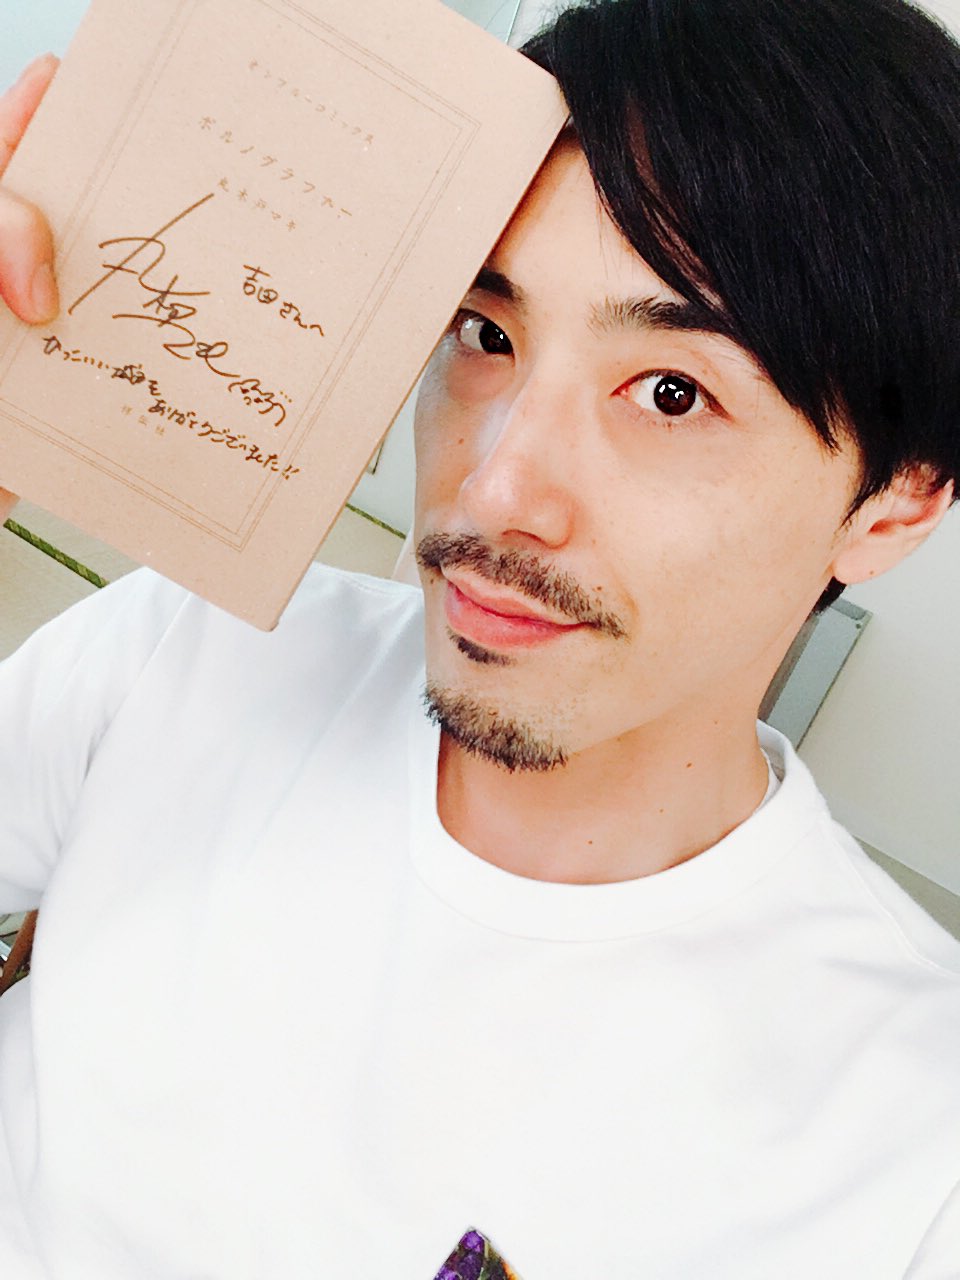 オンブルーコミックス
ポルノグラファー
丸木戸マキ
吉田さんへ
丸木戸マキ
かっこいい城戸を
ありがとうございました!!
祥伝社